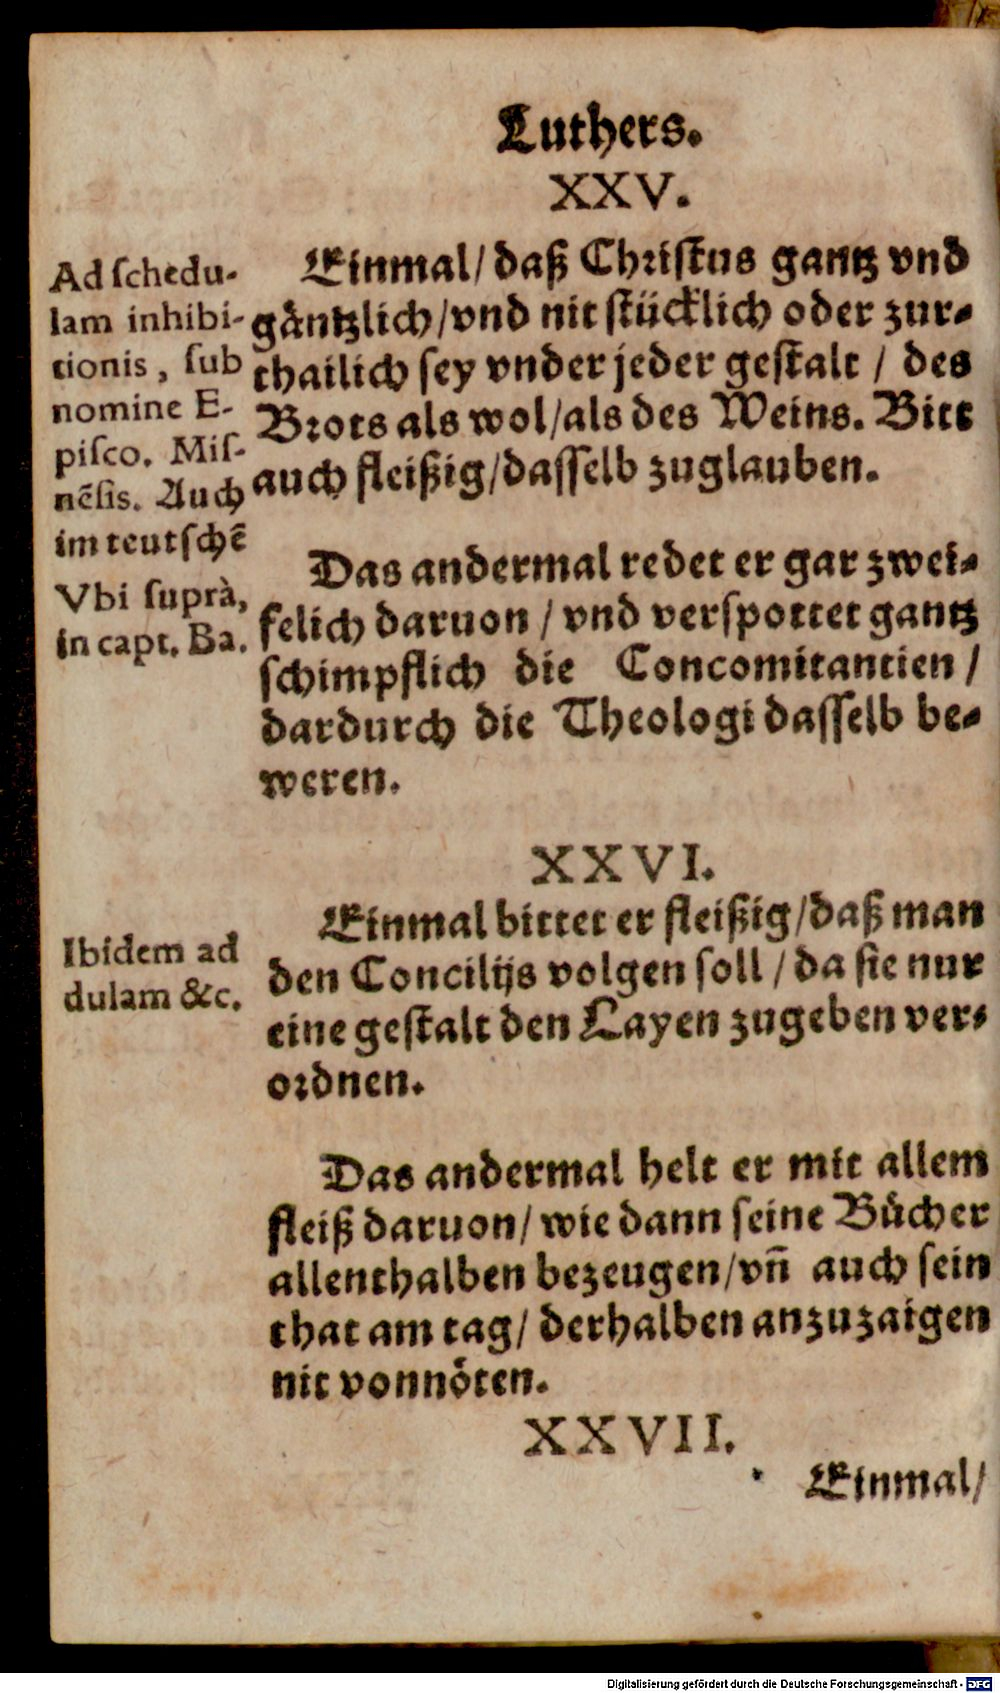 Luthers.
XXV.
Ad schedu-
lam inhibi-
tionis, sub
nomine E-
pisco. Mis-
nēsis. Auch
im teutschē
Einmal/ daß Christus gantz vnd
gäntzlich/vnd nit stücklich oder zur-
thailich sey vnder jeder gestalt / des
Brots als wol/als des Weins. Bitt
auch fleißig/dasselb zuglauben.
Vbi suprà,
in capt. Ba.
Das andermal redet er gar zwei-
felich daruon / vnd verspottet gantz
schimpflich die Concomitantien /
dardurch die Theologi dasselb be-
weren.
XXVI.
Ibidem ad
dulam &c.
Einmal bittet er fleißig/daß man
den Concilijs volgen soll / da sie nur
eine gestalt den Layen zugeben ver-
ordnen.
Das andermal helt er mit allem
fleiß daruon/ wie dann seine Bücher
allenthalben bezeugen/vñ auch sein
that am tag/ derhalben anzuzaigen
nit vonnöten.
XXVII.
Einmal/
Digitalisierung gefördert durch die Deutsche Forschungsgemeinschaft - DFG